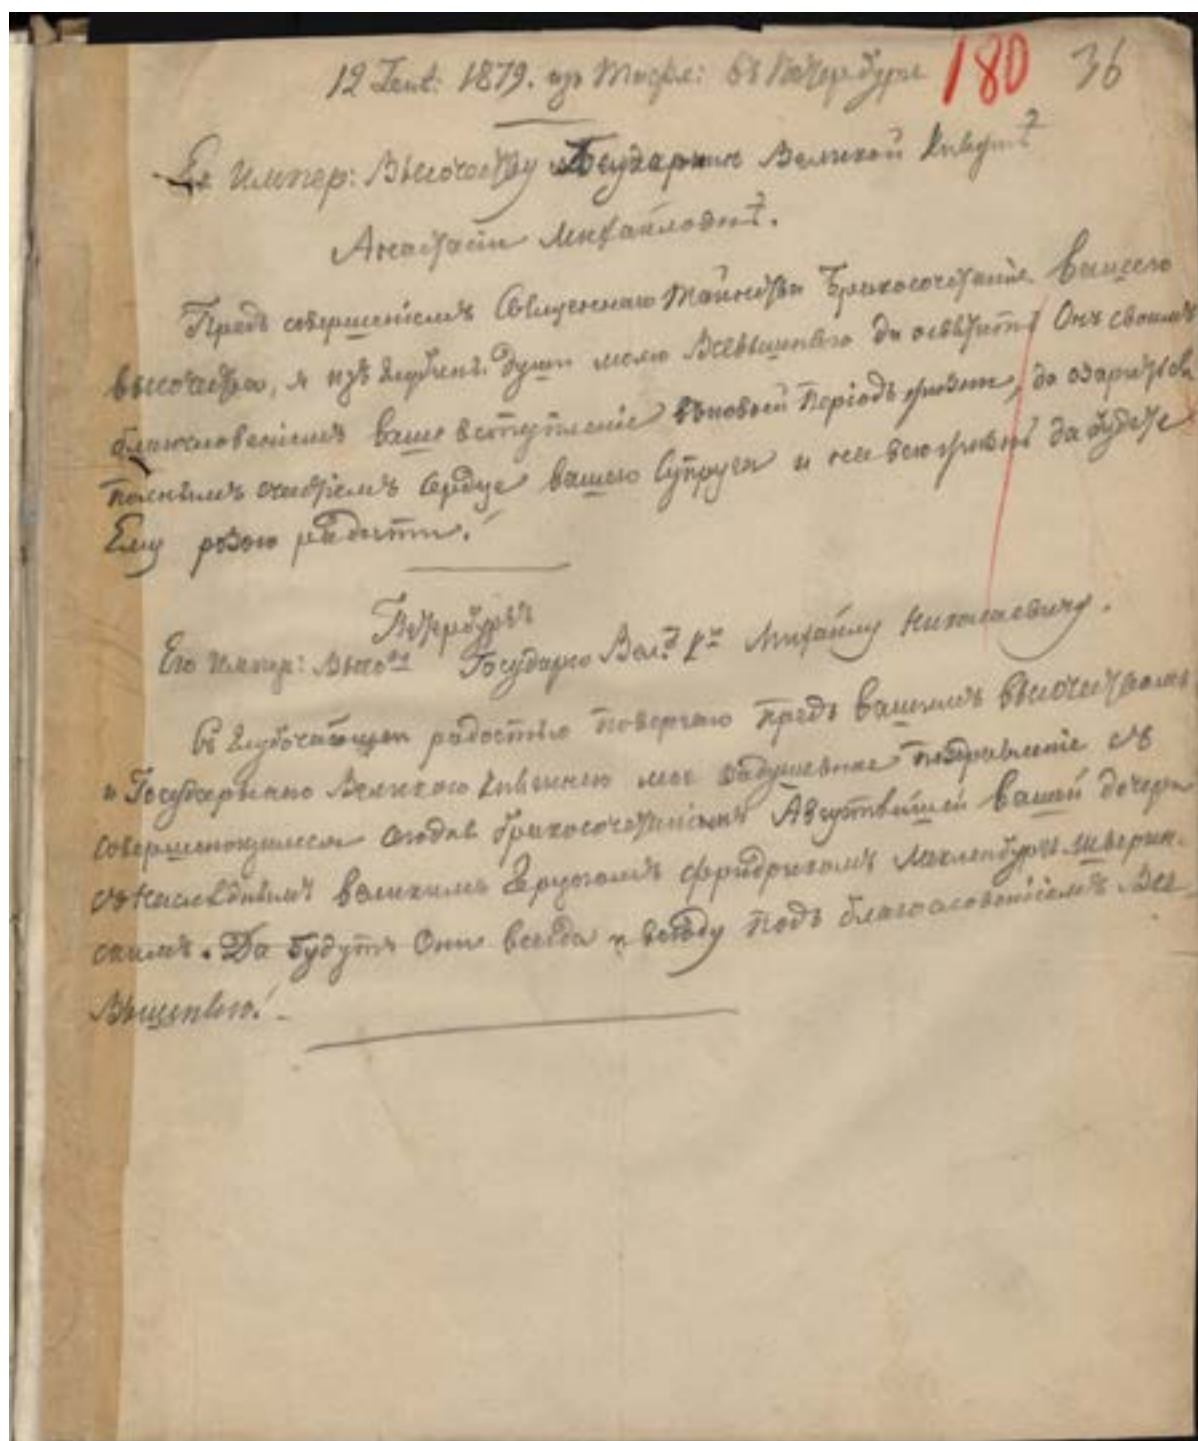 12 Генв: 1879. изъ Тифл: въ Петербургъ 180 36
Ея Импер: Высочеству Государынѣ Великой Княжнѣ
Анастасіи Михайловнѣ.
Предъ совершеніемъ Священнаго Таинства Бракосочетанія Вашего
Высочества, я изъ глубины души молю Всевышняго да освѣтитъ Онъ своимъ
благословеніемъ ваше вступленіе въ новый періодъ жизни, да озаритъ
полнымъ счастіемъ сердце вашего Супруга и на всю жизнь да будете
Ему розою радости!
Петербургъ
Его Импер: Высо⁻ву Государю Вел: Кн: Михаилу Николаевичу.
Съ глубочайшей радостью повергаю предъ Вашимъ Высочествомъ
и Государынею Великою Княгинею мое задушевное поздравленіе съ
совершающимся сегодня бракосочетаніемъ Августѣйшей Вашей дочери
съ Наслѣднымъ Великимъ Герцогомъ Фридрихомъ Мекленбургъ-Шверин-
скимъ. Да будутъ Они всегда и всюду подъ благословеніемъ Все-
вышняго!